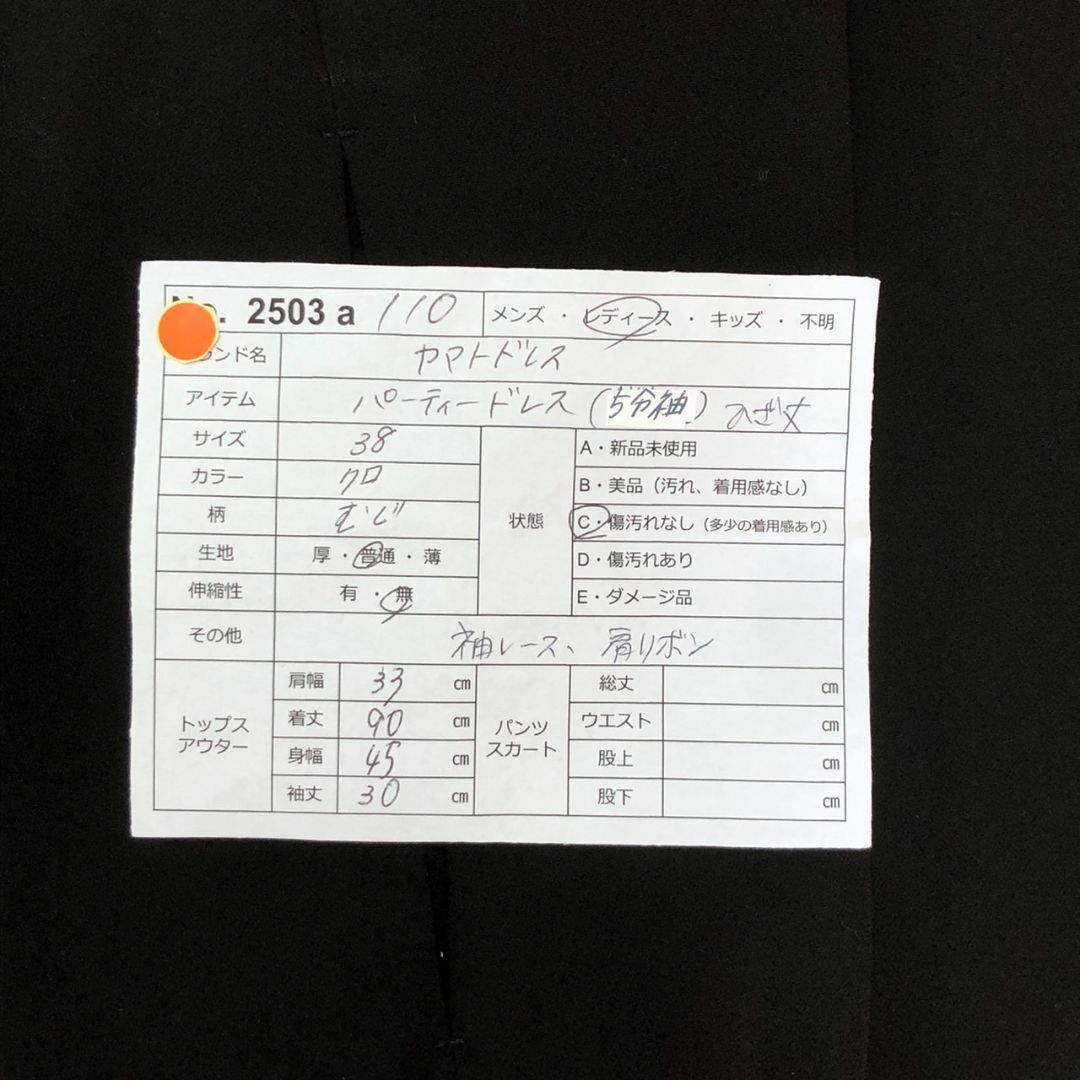 No. 2503 a 110 メンズ ・ レディース ・ キッズ ・ 不明
ンド名 ヤマトドレス
アイテム パーティードレス (5分袖) ひざ丈
サイズ 38
カラー クロ
柄 むじ
生地 厚 ・ 普通 ・ 薄
伸縮性 有 ・ 無
状態
A・新品未使用
B・美品（汚れ、着用感なし）
C・傷汚れなし（多少の着用感あり）
D・傷汚れあり
E・ダメージ品
その他 袖レース、肩リボン
トップス
アウター
肩幅 33 cm
着丈 90 cm
身幅 45 cm
袖丈 30 cm
パンツ
スカート
総丈 cm
ウエスト cm
股上 cm
股下 cm